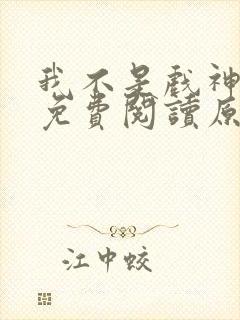 我不是戲神
免費閱讀原
江中蛟